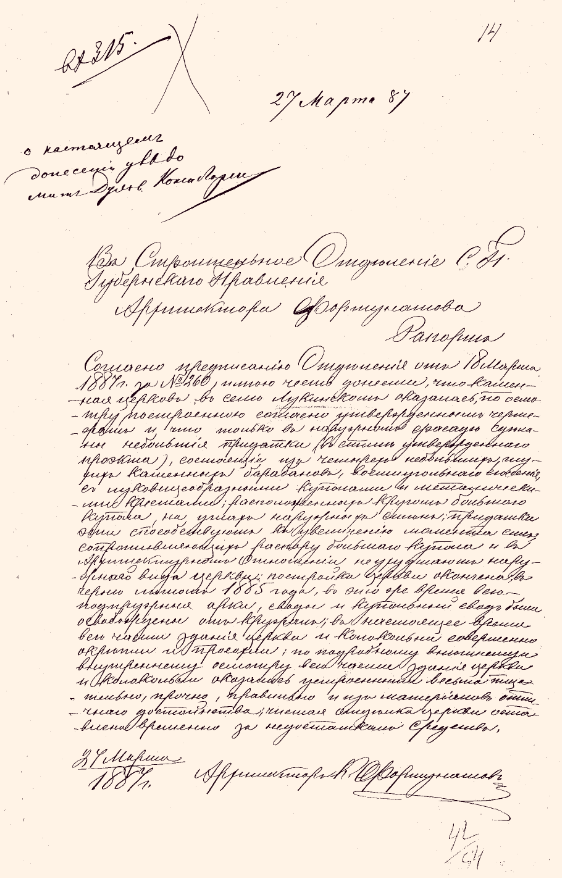 14
вх 315.
27 Марта 87
о настоящем
донесении
В Строительное Отделение С. П.
Губернскаго Правления
Архитектора Фортунатова
Рапорт
Согласно предписанию Отделения от 18 Марта
1887 г. за № 260, имею честь донести, что камен-
ная церковь в селе оказалась, по осмо-
тру построенною согласно утвержденным черте-
жам и что только в наружном фасаде сдела-
ны небольшия придатки (в стиле утвержденнаго
проэкта), состоящия из четырех небольших, глу-
хих каменных барабанов, восьмиугольнаго сечения,
с луковицеобразными куполами и металлически-
ми крестами, расположенных кругом большаго
купола на углах наружных стен; придатки
эти способствуют к увеличению момента стен,
сопротивляющихся распору большаго купола и в
Архитектурном отношении не нарушают нару-
жнаго вида церкви; постройка церкви окончена в
черне летом 1885 года, в это же время все
подпружныя арки, своды и купольный свод были
освобождены от кружал; в настоящее время
все части здания церкви и колокольни совершенно
окрепли и просохли; по подробному внешнему и
внутреннему осмотру все части здания церкви
и колокольни оказались устроенными весьма тща-
тельно, прочно, правильно и из материалов отли-
чнаго достоинства; чистая отделка церкви оста-
влена временно за недостатком средств.
27 Марта
1887 г.
Архитектор Фортунатов
42
54